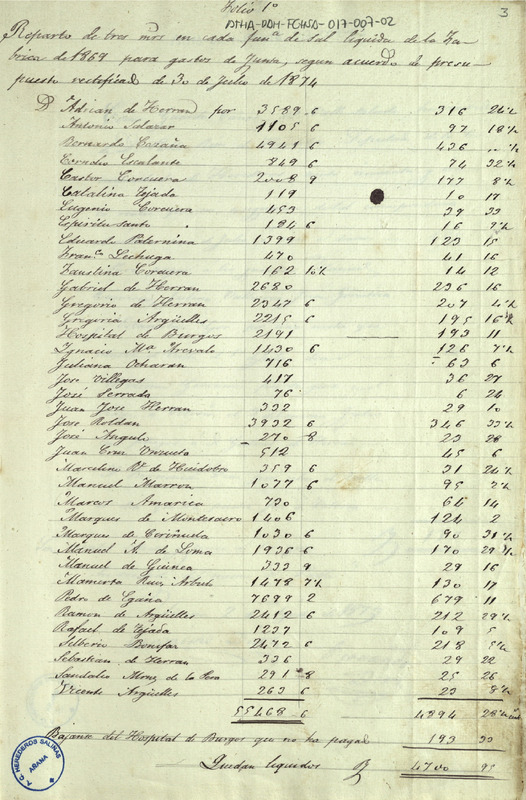 Folio 1º
ATHA-DDH-FCHSA-017-007-02
3
Reparto de tres mrs en cada fanª de sal líquida de la Fá-
brica de 1869 para gastos de Junta, segun acuerdo de presu-
puesto rectificado de 30 de Julio de 1874
D. Adrian de Herran por 3589 6 316 26½
Antonio Salazar 1105 6 97 18½
Bernardo Cazaña 4941 6 436
Cornelio Escalante 849 6 74 32½
Castor Corcuera 2008 9 177 8½
Catalina Tejada 119 10 17
Eugenio Corcuera 453 39 33
Espiritu-santo 184 6 16 9½
Eduardo Paternina 1399 123 15
Franca Lechuga 470 41 16
Faustina Corcuera 162 10½ 14 12
Gabriel de Herran 2680 236 16
Gregorio de Herran 2347 6 207 4½
Gregoria Argüelles 2215 6 195 16½
Hospital de Burgos 2191 193 11
Ignacio Mª Arevalo 1430 6 126 7½
Juliana Ocharan 716 63 6
Jose Villegas 417 36 27
José Serrada 76 6 24
Juan Jose Herran 332 29 10
Jose Roldan 3932 6 346 33½
José Angulo 270 8 23 28
Juan Cruz 512 45 6
Marcelino Rz de Huidobro 359 6 31 24½
Manuel Marron 1077 6 95 2½
Marcos Amarica 750 66 14
Marques de Montesacro 1406 124 2
Marques de Ciriñuela 1030 6 90 31½
Manuel A. de Lima 1936 6 170 29½
Manuel de Guinea 333 9 29 16
Mamerta Ruiz 1478 7½ 130 17
Pedro de Egaña 7699 2 679 11
Ramon de Argüelles 2412 6 212 29½
Rafael de Tejada 1237 109 5
Silverio Bonifaz 2472 6 218 5½
Sebastian de Herran 336 29 22
Sandalio Mrnz de la Pera 291 8 25 26
Vicente Argüelles 263 6 23 8½
55468 6 4894 28½
Bajanse del Hospital de Burgos que no ha pagado 193 33
Quedan líquidos R 4700 95
T. C. HEREDEROS SALINAS
AÑANA